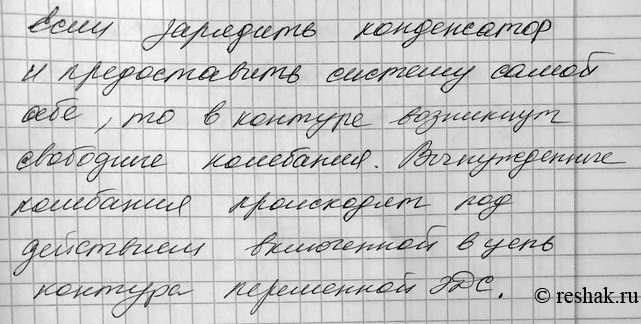 если зарядить конденсатор
и предоставить систему самой
себе, то в контуре возникнут
свободные колебания. Вынужденные
колебания происходят под
действием включенной в цепь
контура переменной ЭДС.
© reshak.ru